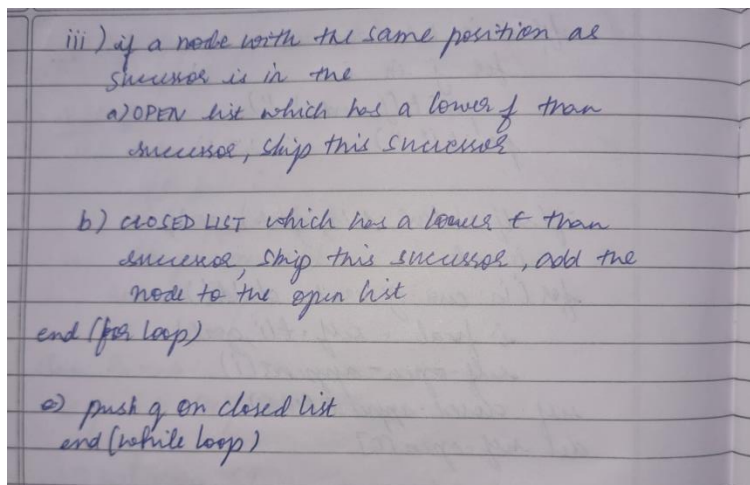 iii) if a node with the same position as
successor is in the
a) OPEN list which has a lower f than
successor, skip this successor
b) CLOSED LIST which has a lower f than
successor, skip this successor, add the
node to the open list
end (for loop)
e) push q on closed list
end (while loop)